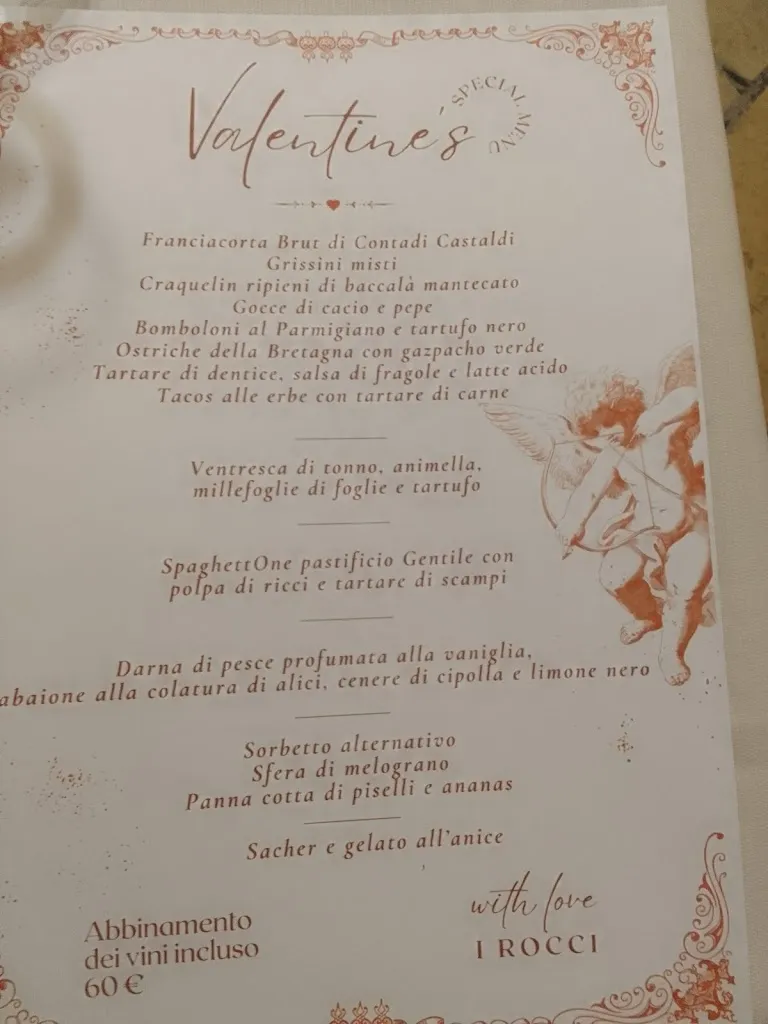 Valentine's
SPECIAL MENU
Franciacorta Brut di Contadi Castaldi
Grissini misti
Craquelin ripieni di baccalà mantecato
Gocce di cacio e pepe
Bomboloni al Parmigiano e tartufo nero
Ostriche della Bretagna con gazpacho verde
Tartare di dentice, salsa di fragole e latte acido
Tacos alle erbe con tartare di carne
Ventresca di tonno, animella,
millefoglie di foglie e tartufo
SpaghettOne pastificio Gentile con
polpa di ricci e tartare di scampi
Darna di pesce profumata alla vaniglia,
abaione alla colatura di alici, cenere di cipolla e limone nero
Sorbetto alternativo
Sfera di melograno
Panna cotta di piselli e ananas
Sacher e gelato all'anice
Abbinamento
dei vini incluso
60 €
with love
I ROCCI